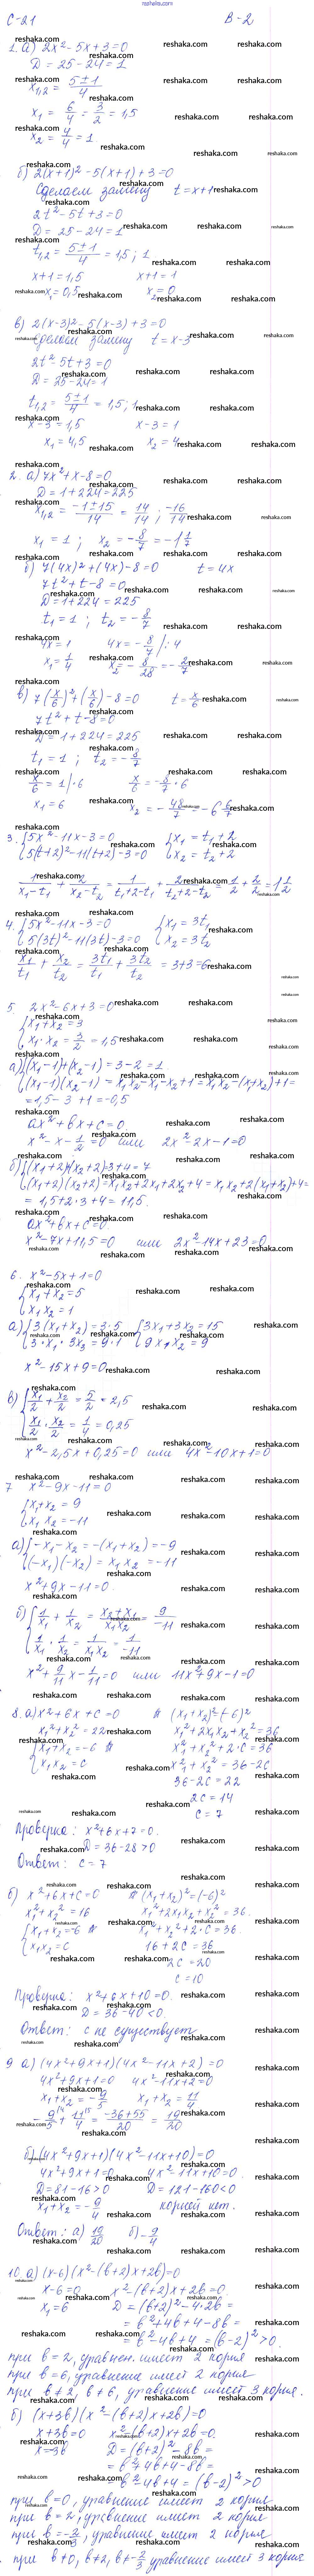 reshaka.com
С-21 В-2
1. а) 2x² - 5x + 3 = 0
D = 25 - 24 = 1
x₁,₂ = (5 ± 1)/4
x₁ = 6/4 = 3/2 = 1,5
x₂ = 4/4 = 1
б) 2(x+1)² - 5(x+1) + 3 = 0
Сделаем замену t = x+1
2t² - 5t + 3 = 0
D = 25 - 24 = 1
t₁,₂ = (5 ± 1)/4 = 1,5 ; 1
x+1 = 1,5 x+1 = 1
x₁ = 0,5 x₂ = 0
в) 2(x-3)² - 5(x-3) + 3 = 0
Сделаем замену t = x-3
2t² - 5t + 3 = 0
D = 25 - 24 = 1
t₁,₂ = (5 ± 1)/4 = 1,5 ; 1
x-3 = 1,5 x-3 = 1
x₁ = 4,5 x₂ = 4
2. а) 7x² + x - 8 = 0
D = 1 + 224 = 225
x₁,₂ = (-1 ± 15)/14 = 14/14 ; -16/14
x₁ = 1 ; x₂ = -8/7 = -1 1/7
б) 7(4x)² + (4x) - 8 = 0 t = 4x
7t² + t - 8 = 0
D = 1 + 224 = 225
t₁ = 1 ; t₂ = -8/7
4x = 1 4x = -8/7 /:4
x₁ = 1/4 x₂ = -8/28 = -2/7
в) 7(x/6)² + (x/6) - 8 = 0 t = x/6
7t² + t - 8 = 0
D = 1 + 224 = 225
t₁ = 1 ; t₂ = -8/7
x/6 = 1 |·6 x/6 = -8/7 ·6
x₁ = 6 x₂ = -48/7 = -6 6/7
3. {5x² - 11x - 3 = 0 {x₁ = t₁ + 2
{5(t+2)² - 11(t+2) - 3 = 0 {x₂ = t₂ + 2
1/(x₁-t₁) + 2/(x₂-t₂) = 1/(t₁+2-t₁) + 2/(t₂+2-t₂) = 1/2 + 2/2 = 1 1/2
4. {5x² - 11x - 3 = 0 {x₁ = 3t₁
{5(3t)² - 11(3t) - 3 = 0 {x₂ = 3t₂
x₁/t₁ + x₂/t₂ = 3t₁/t₁ + 3t₂/t₂ = 3+3 = 6
5. 2x² - 6x + 3 = 0
{x₁ + x₂ = 3
{x₁ · x₂ = 3/2 = 1,5
а) {(x₁-1) + (x₂-1) = 3 - 2 = 1
{(x₁-1)(x₂-1) = x₁x₂ - x₁ - x₂ + 1 = x₁x₂ - (x₁+x₂) + 1 =
= 1,5 - 3 + 1 = -0,5
ax² + bx + c = 0
x² - x - 1/2 = 0 или 2x² - 2x - 1 = 0
б) {(x₁+2)+(x₂+2) = 3+4 = 7
{(x₁+2)(x₂+2) = x₁x₂ + 2x₁ + 2x₂ + 4 = x₁x₂ + 2(x₁+x₂) + 4 =
= 1,5 + 2·3 + 4 = 11,5
ax² + bx + c = 0
x² - 7x + 11,5 = 0 или 2x² - 14x + 23 = 0
6. x² - 5x + 1 = 0
{x₁ + x₂ = 5
{x₁x₂ = 1
а) {3(x₁ + x₂) = 3·5 {3x₁ + 3x₂ = 15
{3·x₁ · 3x₂ = 9·1 {9x₁x₂ = 9
x² - 15x + 9 = 0
в) {x₁/2 + x₂/2 = 5/2 = 2,5
{x₁/2 · x₂/2 = 1/4 = 0,25
x² - 2,5x + 0,25 = 0 или 4x² - 10x + 1 = 0
7 x² - 9x - 11 = 0
{x₁ + x₂ = 9
{x₁x₂ = -11
а) {-x₁ - x₂ = -(x₁ + x₂) = -9
{(-x₁)(-x₂) = x₁x₂ = -11
x² + 9x - 11 = 0
б) {1/x₁ + 1/x₂ = (x₂+x₁)/(x₁x₂) = 9/-11
{1/x₁ · 1/x₂ = 1/(x₁x₂) = 1/-11
x² + 9/11 x - 1/11 = 0 или 11x² + 9x - 1 = 0
8. а) x² + 6x + c = 0 (x₁+x₂)² = (-6)²
x₁² + x₂² = 22 x₁² + 2x₁x₂ + x₂² = 36
{x₁ + x₂ = -6 x₁² + x₂² + 2·c = 36
{x₁x₂ = c x₁² + x₂² = 36 - 2c
36 - 2c = 22
2c = 14
c = 7
Проверка: x² + 6x + 7 = 0
D = 36 - 28 > 0
Ответ: c = 7
б) x² + 6x + c = 0 (x₁+x₂)² = (-6)²
x₁² + x₂² = 16 x₁² + 2x₁x₂ + x₂² = 36
{x₁ + x₂ = -6 x₁² + x₂² + 2·c = 36
{x₁x₂ = c 16 + 2c = 36
2c = 20
c = 10
Проверка: x² + 6x + 10 = 0
D = 36 - 40 < 0
Ответ: c не существует
9 а) (4x² + 9x + 1)(4x² - 11x + 2) = 0
4x² + 9x + 1 = 0 4x² - 11x + 2 = 0
x₁ + x₂ = -9/5 x₁ + x₂ = 11/4
-9/5 + 11/4 = (-36+55)/20 = 19/20
б) (4x² + 9x + 1)(4x² - 11x + 10) = 0
4x² + 9x + 1 = 0 4x² - 11x + 10 = 0
D = 81 - 16 > 0 D = 121 - 160 < 0
x₁ + x₂ = -9/4 корней нет.
Ответ: а) 19/20 б) -9/4
10. а) (x-6)(x² - (b+2)x + 2b) = 0
x - 6 = 0 x² - (b+2)x + 2b = 0
x₁ = 6 D = (b+2)² - 4·2b =
= b² + 4b + 4 - 8b =
= b² - 4b + 4 = (b-2)² > 0
при b = 2, уравнен. имеет 2 корня
при b = 6, уравнение имеет 2 корня
при b ≠ 2, b ≠ 6, уравнение имеет 3 корня.
б) (x+3b)(x² - (b+2)x + 2b) = 0
x + 3b = 0 x² - (b+2)x + 2b = 0
x = -3b D = (b+2)² - 8b =
= b² + 4b + 4 - 8b =
= b² - 4b + 4 = (b-2)² > 0
при b = 0, уравнение имеет 2 корня
при b = 2, уравнение имеет 2 корня
при b = -2/3, уравнение имеет 2 корня
при b ≠ 0, b ≠ 2, b ≠ -2/3 уравнение имеет 3 корня